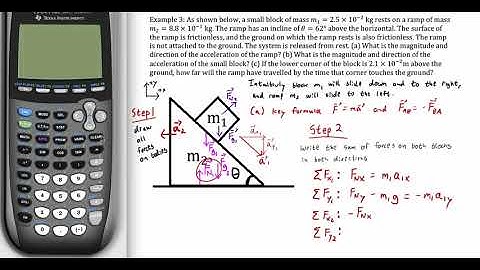 Example 3: As shown below, a small block of mass m₁ = 2.5 × 10⁻² kg rests on a ramp of mass
m₂ = 8.8 × 10⁻¹ kg. The ramp has an incline of θ = 62° above the horizontal. The surface of
the ramp is frictionless, and the ground on which the ramp rests is also frictionless. The ramp
is not attached to the ground. The system is released from rest. (a) What is the magnitude and
direction of the acceleration of the ramp? (b) What is the magnitude and direction of the
acceleration of the small block? (c) If the lower corner of the block is 2.1 × 10⁻²m above the
ground, how far will the ramp have travelled by the time that corner touches the ground?
Intuitively block m₁ will slide down and to the right,
and ramp m₂ will slide to the left.
(a) key formula F⃗ = ma⃗ and F⃗AB = -F⃗BA
Step 1
draw
all
forces
on bodies
a⃗₂
m₁
m₂
θ
Step 2
Write the sum of forces on both blocks
in both directions
ΣFx₁: FNx = m₁a₁x
ΣFy₁: FNy - m₁g = -m₁a₁y
ΣFx₂: -FNx
ΣFy₂: